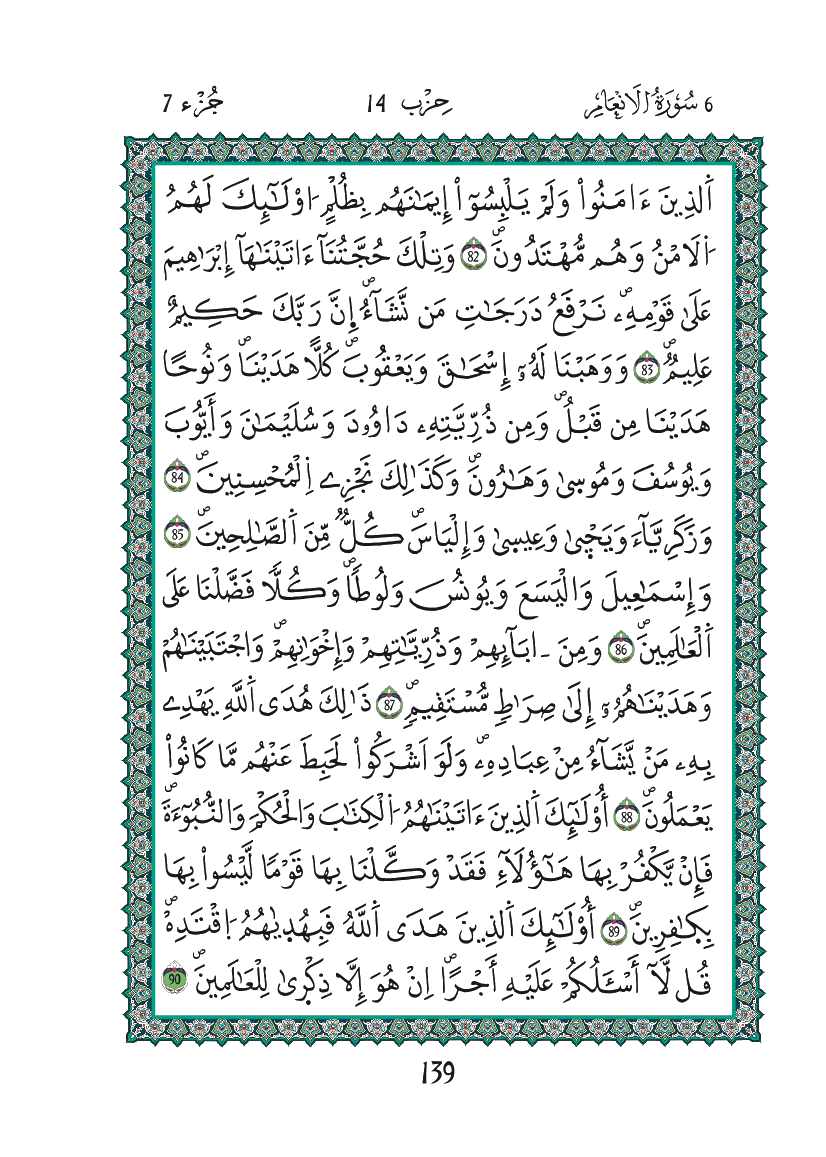 6 سُورَةُ الَانْعَامِ
حِزْب 14
جُزْء 7
اَ۬لذِينَ ءَامَنُواْ وَلَمْ يَلْبِسُوٓاْ إِيمَٰنَهُم بِظُلْمٍ ا۟وْلَٰٓئِكَ لَهُمُ
اُ۬لَامْنُ وَهُم مُّهْتَدُونَۖ 82 وَتِلْكَ حُجَّتُنَآ ءَاتَيْنَٰهَآ إِبْرَٰهِيمَ
عَلَىٰ قَوْمِهِۦۖ نَرْفَعُ دَرَجَٰتِ مَن نَّشَآءُۖ اِنَّ رَبَّكَ حَكِيمٌ
عَلِيمٌۖ 83 وَوَهَبْنَا لَهُۥٓ إِسْحَٰقَ وَيَعْقُوبَۖ كُلّاً هَدَيْنَاۖ وَنُوحًا
هَدَيْنَا مِن قَبْلُۖ وَمِن ذُرِّيَّتِهِۦ دَاوُۥدَ وَسُلَيْمَٰنَ وَأَيُّوبَ
وَيُوسُفَ وَمُوسىٰ وَهَٰرُونَۖ وَكَذَٰلِكَ نَجْزِے اِ۬لْمُحْسِنِينَۖ 84
وَزَكَرِيَّآءَ وَيَحْيىٰ وَعِيسىٰ وَإِلْيَاسَۖ كُلٌّ مِّنَ اَ۬لصَّٰلِحِينَۖ 85
وَإِسْمَٰعِيلَ وَالْيَسَعَ وَيُونُسَ وَلُوطاًۖ وَكُلّاً فَضَّلْنَا عَلَى
اَ۬لْعَٰلَمِينَۖ 86 وَمِنَ ـ ابَآئِهِمْ وَذُرِّيَّٰتِهِمْ وَإِخْوَٰنِهِمْۖ وَاجْتَبَيْنَٰهُمْ
وَهَدَيْنَٰهُمُۥٓ إِلَىٰ صِرَٰطٍ مُّسْتَقِيمٍۖ 87 ذَٰلِكَ هُدَى اَ۬للَّهِ يَهْدِے
بِهِۦ مَنْ يَّشَآءُ مِنْ عِبَادِهِۦۖ وَلَوَ اَشْرَكُواْ لَحَبِطَ عَنْهُم مَّا كَانُواْ
يَعْمَلُونَۖ 88 أُوْلَٰٓئِكَ اَ۬لذِينَ ءَاتَيْنَٰهُمُ اُ۬لْكِتَٰبَ وَالْحُكْمَ وَالنُّبُوٓءَةَۖ
فَإِنْ يَّكْفُرْ بِهَا هَٰٓؤُلَآءِ فَقَدْ وَكَّلْنَا بِهَا قَوْمًا لَّيْسُواْ بِهَا
بِكَٰفِرِينَۖ 89 أُوْلَٰٓئِكَ اَ۬لذِينَ هَدَى اَ۬للَّهُ فَبِهُدَىٰهُمُ اُ۪قْتَدِهْۖ
قُل لَّآ أَسْـَٔلُكُمْ عَلَيْهِ أَجْراًۖ اِنْ هُوَ إِلَّا ذِكْرىٰ لِلْعَٰلَمِينَۖ 90
139